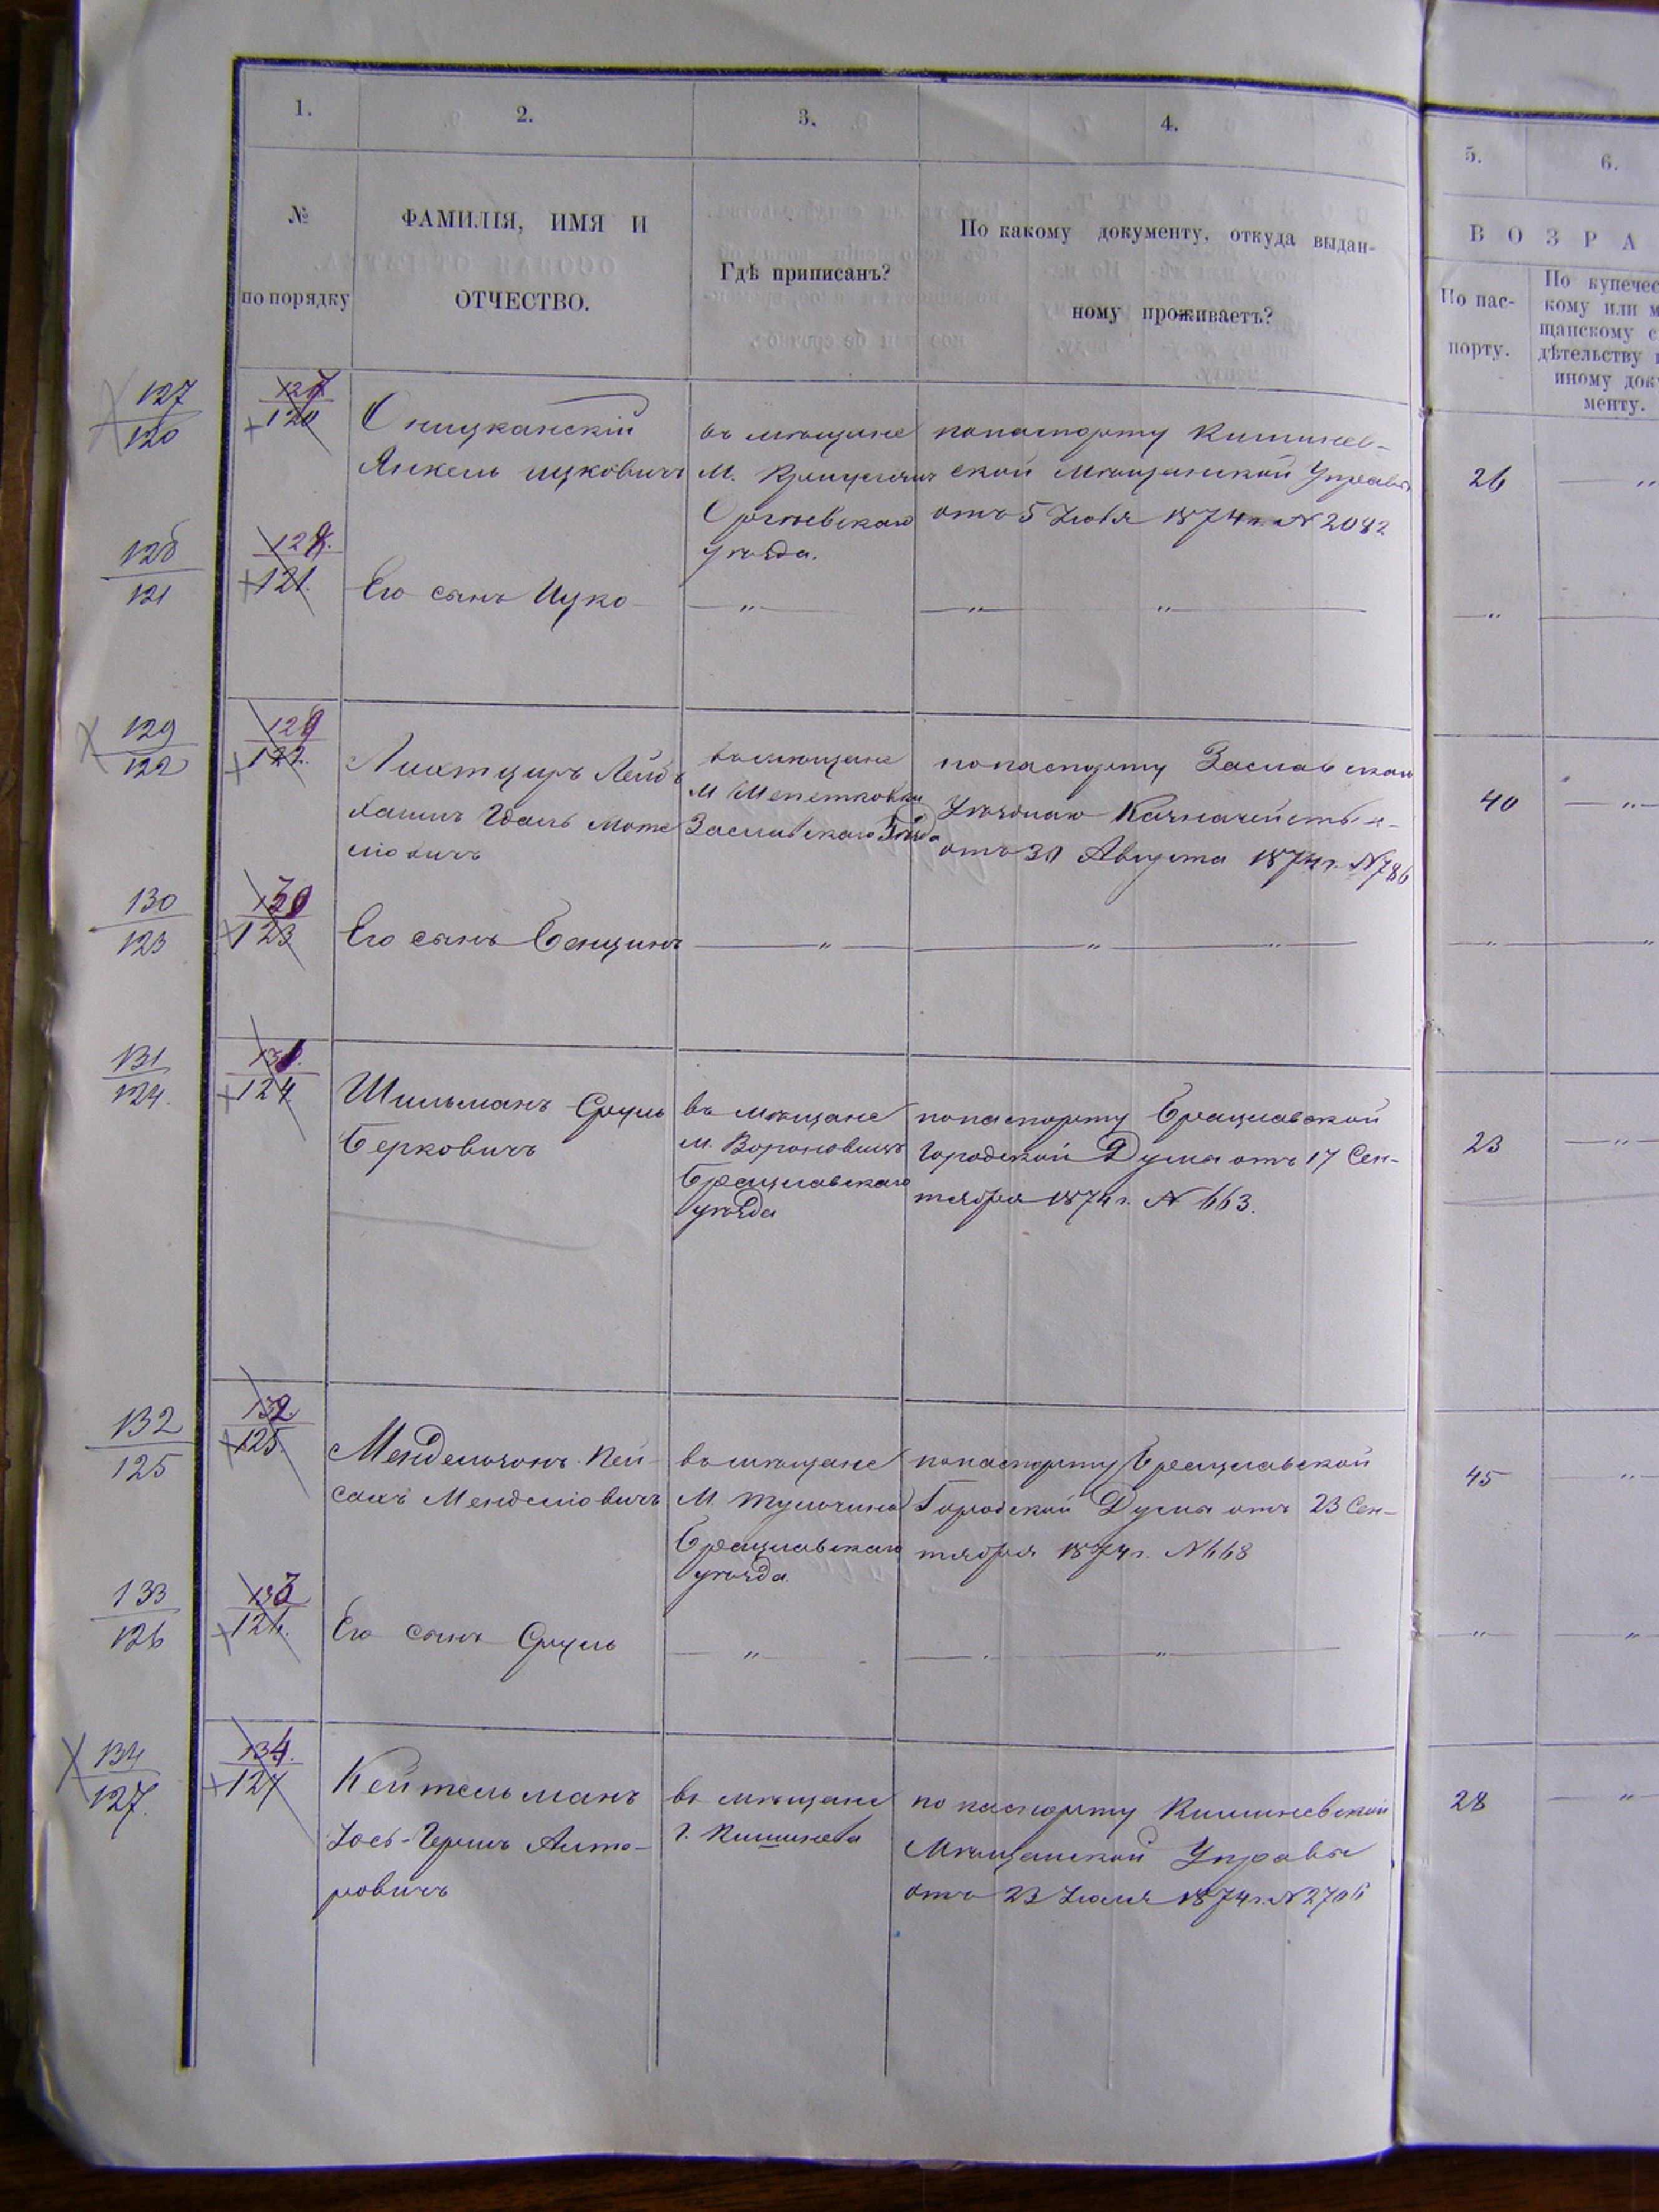 1.
2.
3.
4.
5.
6.
№
по порядку
ФАМИЛІЯ, ИМЯ И
ОТЧЕСТВО.
Гдѣ приписанъ?
По какому документу, откуда выдан-
ному проживаетъ?
ВОЗРА
По пас-
порту.
По купечес
кому или м
щанскому с
дѣтельству
иному док
менту.
127
120
127
120
Оницканскій
Янкель Ицковичъ
въ мѣщане
М.
Оргѣевскаго
уѣзда.
по паспорту Кишинев-
ской Мѣщанской Управы
отъ 5 1874 г. № 2082
26
128
121
128.
121.
Его сынъ Ицко
129
122
129
122.
Лейбъ
въ мѣщане
М
Заславскаго уѣзда
по паспорту Заславскаго
Уѣзднаго Казначейства
отъ 30 Августа 1874 г. № 786
40
130
123
130
123
Его сынъ Бенционъ
131
124.
131.
124
Шильманъ Сруль
Берковичъ
въ мѣщане
м. Вороновицъ
Брацлавскаго
уѣзда
по паспорту Брацлавской
Городской Думы отъ 17 Сен-
тября 1874 г. № 663.
23
132
125
132.
125.
Мендельзонъ Пей-
сахъ Менделіовичъ
въ мѣщане
М. Тульчина
Брацлавскаго
уѣзда
по паспорту Брацлавской
Городской Думы отъ 23 Сен-
тября 1874 г. № 668
45
133
126
133
126.
Его сынъ Сруль
134
127.
134.
127
Кейтельманъ
Іось-Гершъ
ровичъ
въ мѣщане
г. Кишинева
по паспорту Кишиневской
Мѣщанской Управы
отъ 23 Іюля 1874 г. № 2706
28